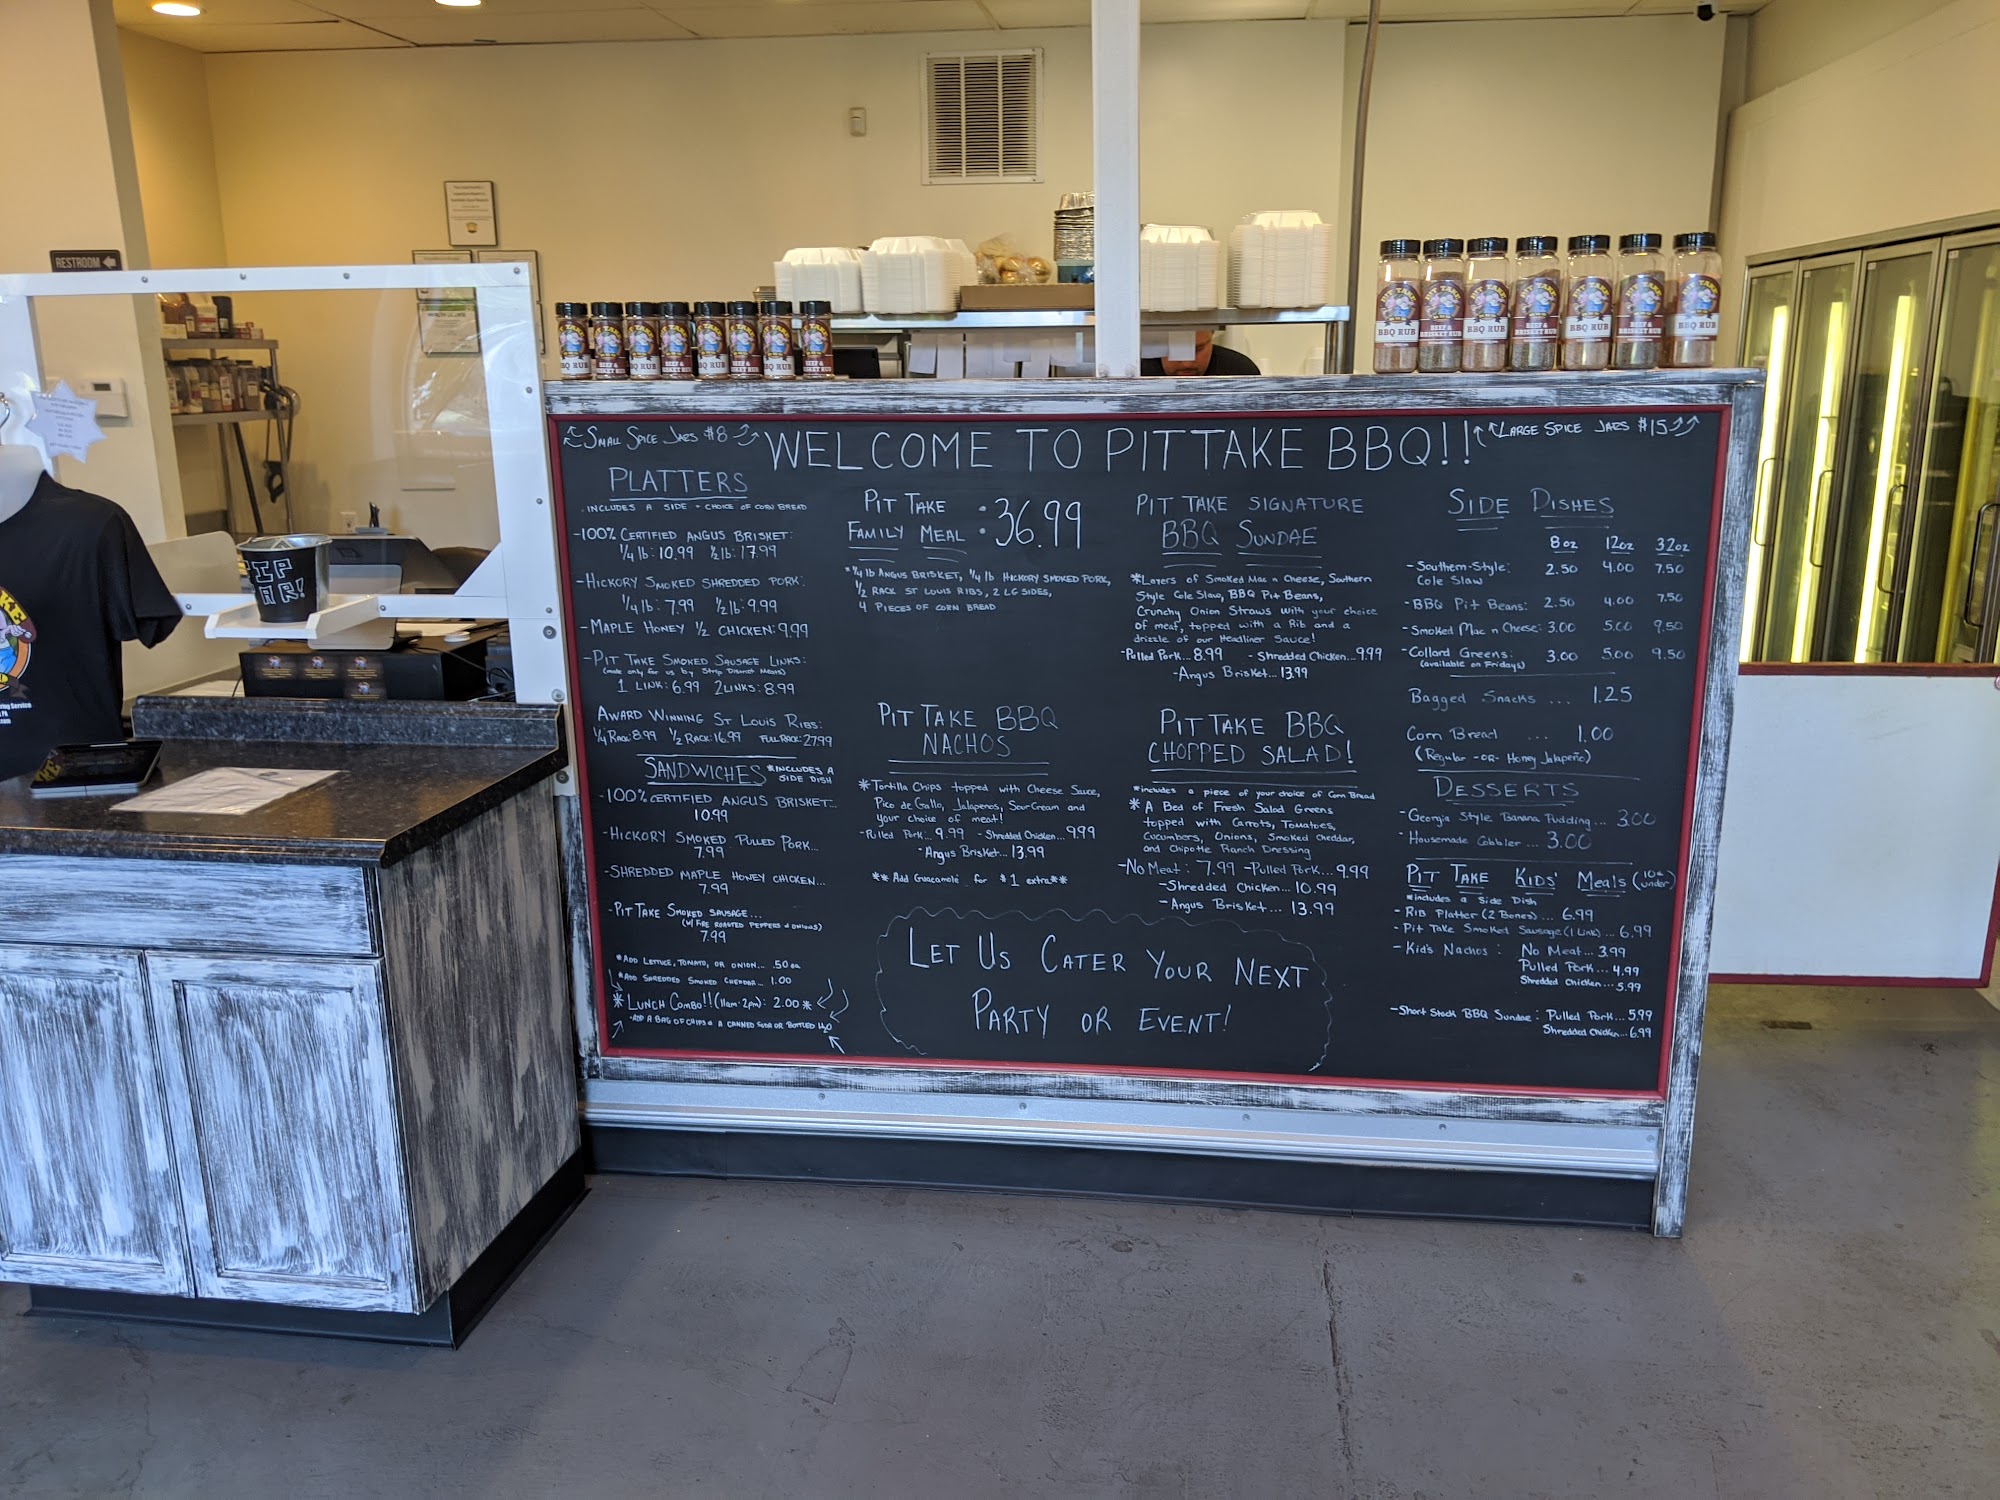 RESTROOM
TIP
JAR!
SMALL SPICE JARS $8
WELCOME TO PIT TAKE BBQ!!
LARGE SPICE JARS $15
PLATTERS
INCLUDES A SIDE + CHOICE OF CORN BREAD
-100% CERTIFIED ANGUS BRISKET:
1/4 lb: 10.99 1/2 lb: 17.99
-HICKORY SMOKED SHREDDED PORK:
1/4 lb: 7.99 1/2 lb: 9.99
-MAPLE HONEY 1/2 CHICKEN: 9.99
-PIT TAKE SMOKED SAUSAGE LINKS:
(made only for us by Strip District Meats)
1 LINK: 6.99 2 LINKS: 8.99
AWARD WINNING ST LOUIS RIBS:
1/4 RACK: 8.99 1/2 RACK: 16.99 FULL RACK: 27.99
SANDWICHES *INCLUDES A
SIDE DISH
-100% CERTIFIED ANGUS BRISKET...
10.99
-HICKORY SMOKED PULLED PORK...
7.99
-SHREDDED MAPLE HONEY CHICKEN...
7.99
-PIT TAKE SMOKED SAUSAGE...
(W/ FIRE ROASTED PEPPERS & ONIONS)
7.99
*ADD LETTUCE, TOMATO, OR ONION... .50 ea
*ADD SHREDDED SMOKED CHEDDAR... 1.00
*LUNCH COMBO!! (11am-2pm): 2.00*
-ADD A BAG OF CHIPS & A CANNED SODA OR BOTTLED H2O
PIT TAKE
FAMILY MEAL : 36.99
*1/4 lb ANGUS BRISKET, 1/4 lb HICKORY SMOKED PORK,
1/2 RACK ST LOUIS RIBS, 2 LG SIDES,
4 PIECES OF CORN BREAD
PIT TAKE BBQ
NACHOS
*Tortilla Chips topped with Cheese Sauce,
Pico de Gallo, Jalapenos, Sour Cream and
your choice of meat!
-Pulled Pork... 9.99 -Shredded Chicken... 9.99
-Angus Brisket... 13.99
** Add Guacamole for $1 extra**
PIT TAKE SIGNATURE
BBQ SUNDAE
*Layers of Smoked Mac n Cheese, Southern
Style Cole Slaw, BBQ Pit Beans,
Crunchy Onion Straws with your choice
of meat, topped with a Rib and a
drizzle of our Headliner Sauce!
-Pulled Pork... 8.99 -Shredded Chicken... 9.99
-Angus Brisket... 13.99
PIT TAKE BBQ
CHOPPED SALAD!
*includes a piece of your choice of Corn Bread
*A Bed of Fresh Salad Greens
topped with Carrots, Tomatoes,
Cucumbers, Onions, Smoked Cheddar,
and Chipotle Ranch Dressing
-No Meat: 7.99 -Pulled Pork... 9.99
-Shredded Chicken... 10.99
-Angus Brisket... 13.99
LET US CATER YOUR NEXT
PARTY OR EVENT!
SIDE DISHES
8oz 12oz 32oz
-Southern-Style: 2.50 4.00 7.50
Cole Slaw
-BBQ Pit Beans: 2.50 4.00 7.50
-Smoked Mac n Cheese: 3.00 5.00 9.50
-Collard Greens: 3.00 5.00 9.50
(available on Fridays)
Bagged Snacks ... 1.25
Corn Bread ... 1.00
(Regular -OR- Honey Jalapeño)
DESSERTS
-Georgia Style Banana Pudding... 3.00
-Housemade Cobbler... 3.00
PIT TAKE KIDS' MEALS (10 & under)
*includes a Side Dish
-Rib Platter (2 Bones)... 6.99
-Pit Take Smoked Sausage (1 Link)... 6.99
-Kid's Nachos: No Meat... 3.99
Pulled Pork... 4.99
Shredded Chicken... 5.99
-Short Stack BBQ Sundae: Pulled Pork... 5.99
Shredded Chicken... 6.99
BBQ RUB
BEEF &
BRISKET RUB
BBQ RUB
BBQ RUB
BEEF &
BRISKET RUB
BBQ RUB